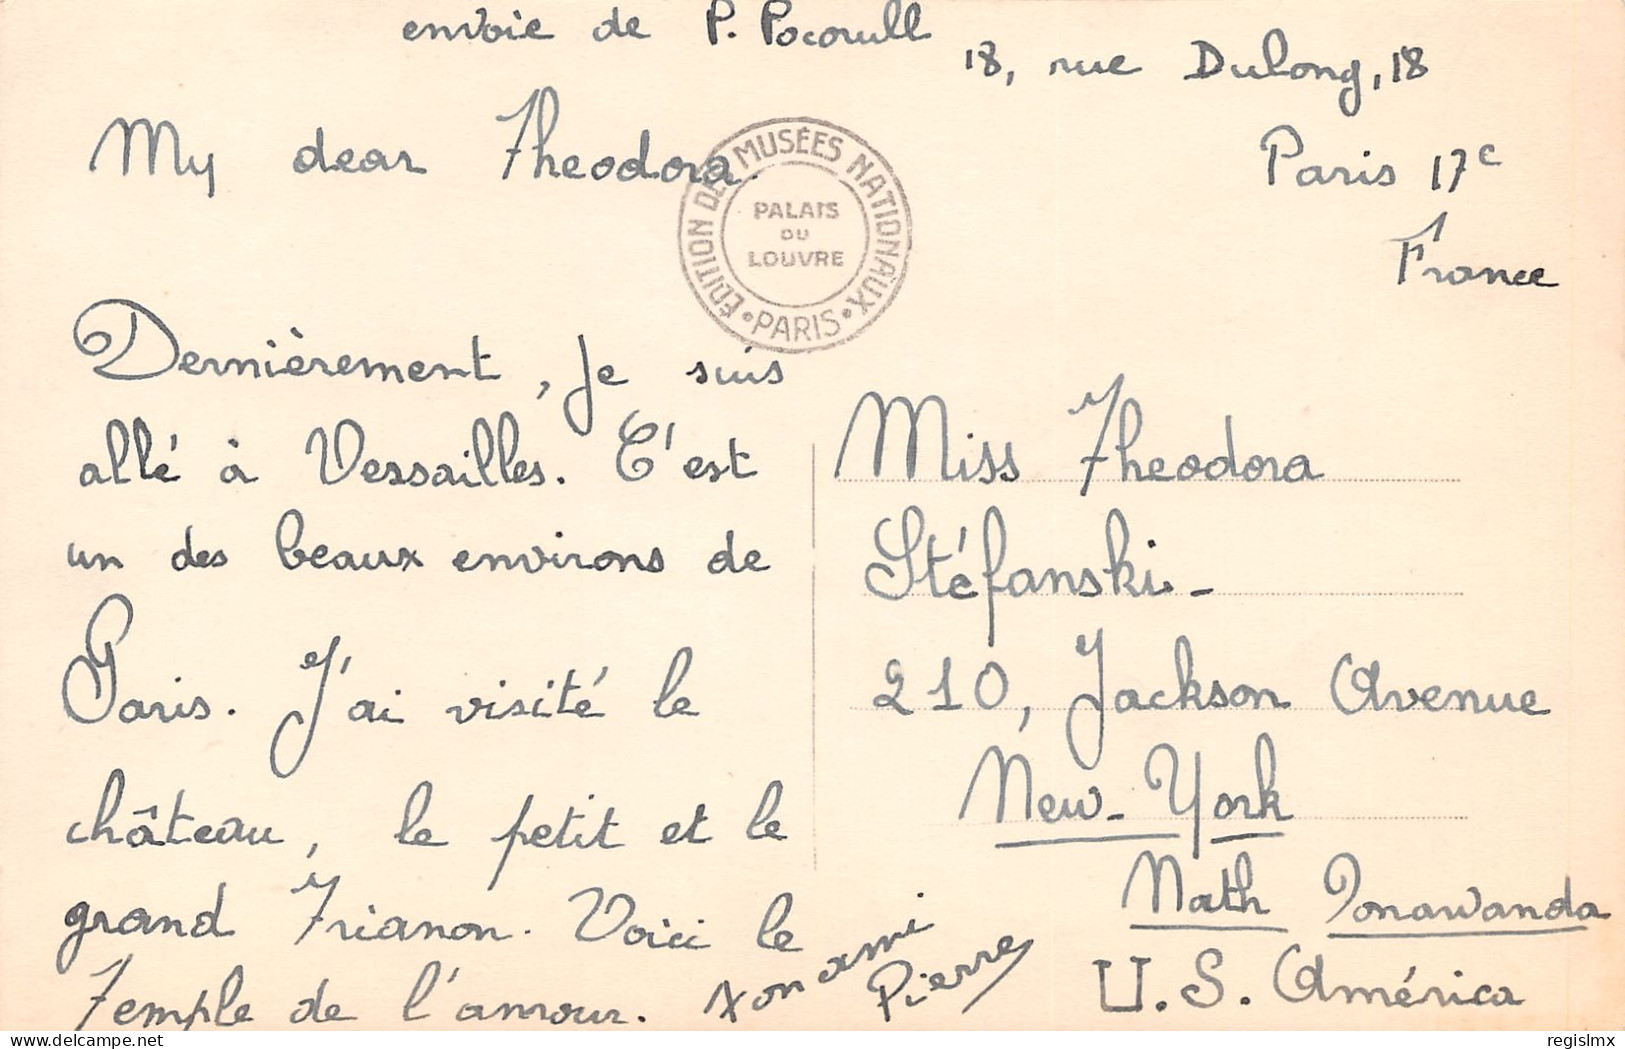 envoie de P. Pocorull
18, rue Dulong, 18
Paris 17e
France
My dear Theodora.
ÉDITION DES MUSÉES NATIONAUX • PARIS •
PALAIS
DU
LOUVRE
Dernièrement, je suis
allé à Versailles. C'est
un des beaux environs de
Paris. J'ai visité le
château, le petit et le
grand Trianon. Voici le
Temple de l'amour. ton ami
Pierre
Miss Theodora
Stéfanski-
210, Jackson Avenue
New-York
Nath Tonawanda
U.S. América
delcampe.net
regislmx